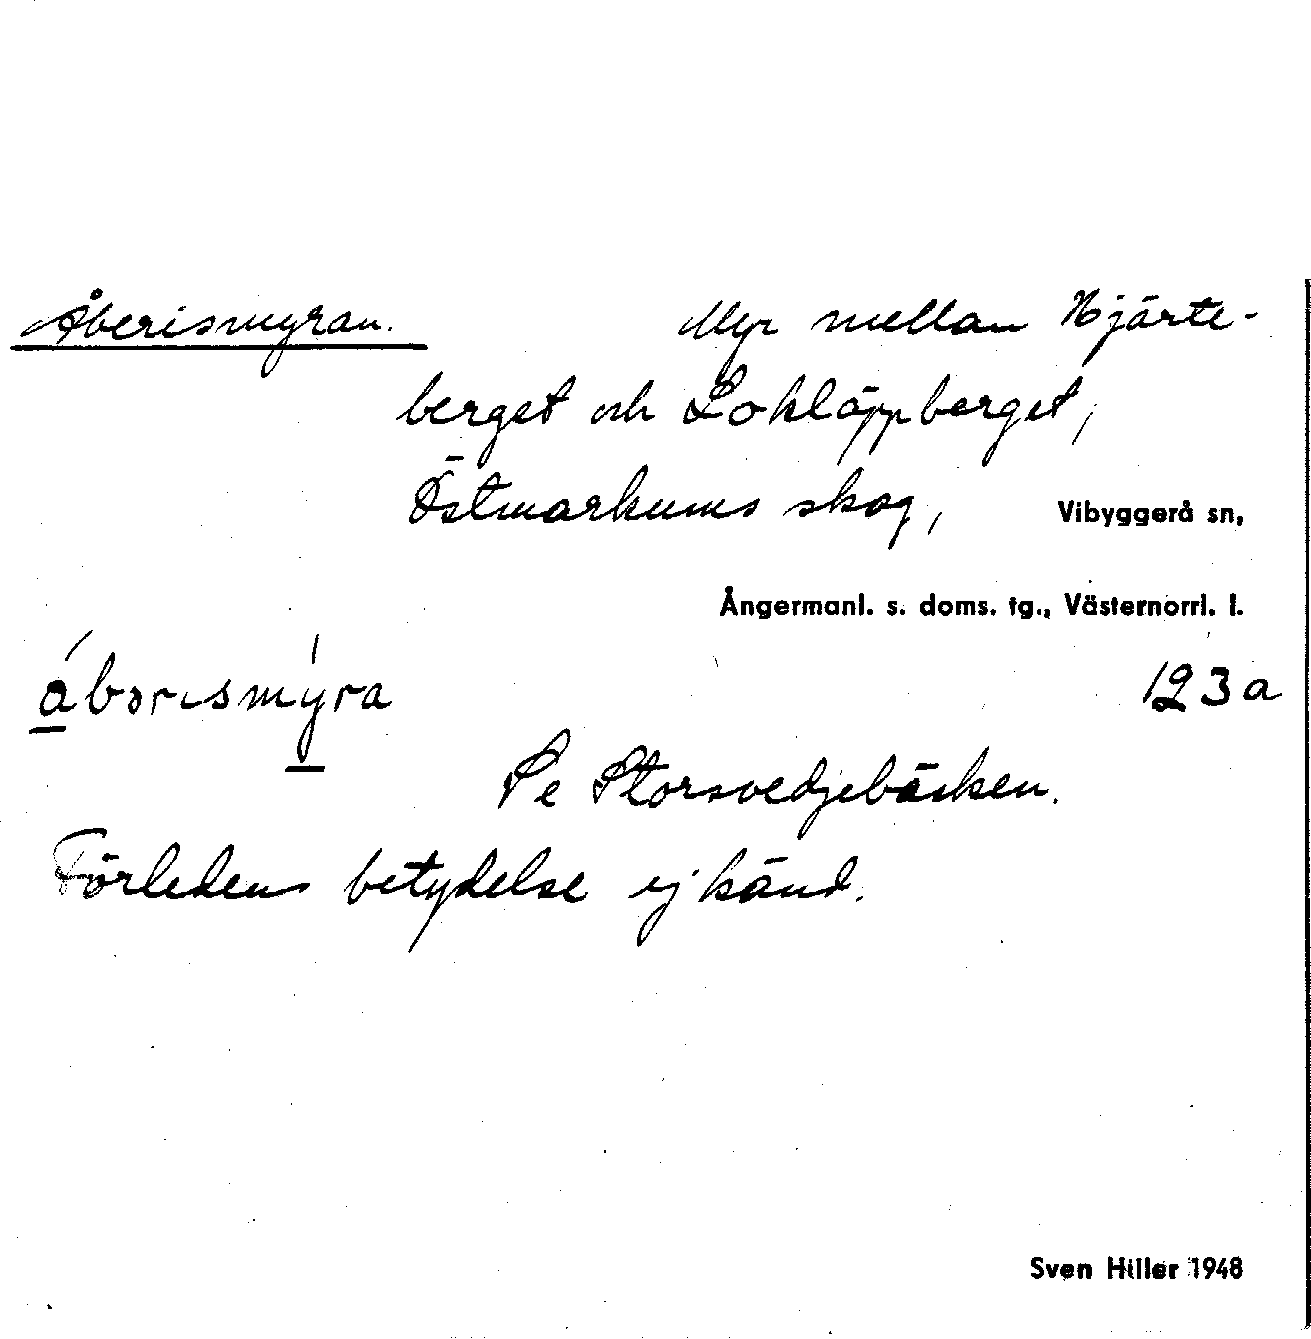 Åberismyran. Myr mellan Hjärte-
berget och Lokläppberget,
Östmarkums skog, Vibyggerå sn,
Ångermanl. s. doms. tg., Västernorrl. l.
ábərısmýra 123a
Se Storsvedjebäcken.
Förledens betydelse ej känd.
Sven Hiller 1948